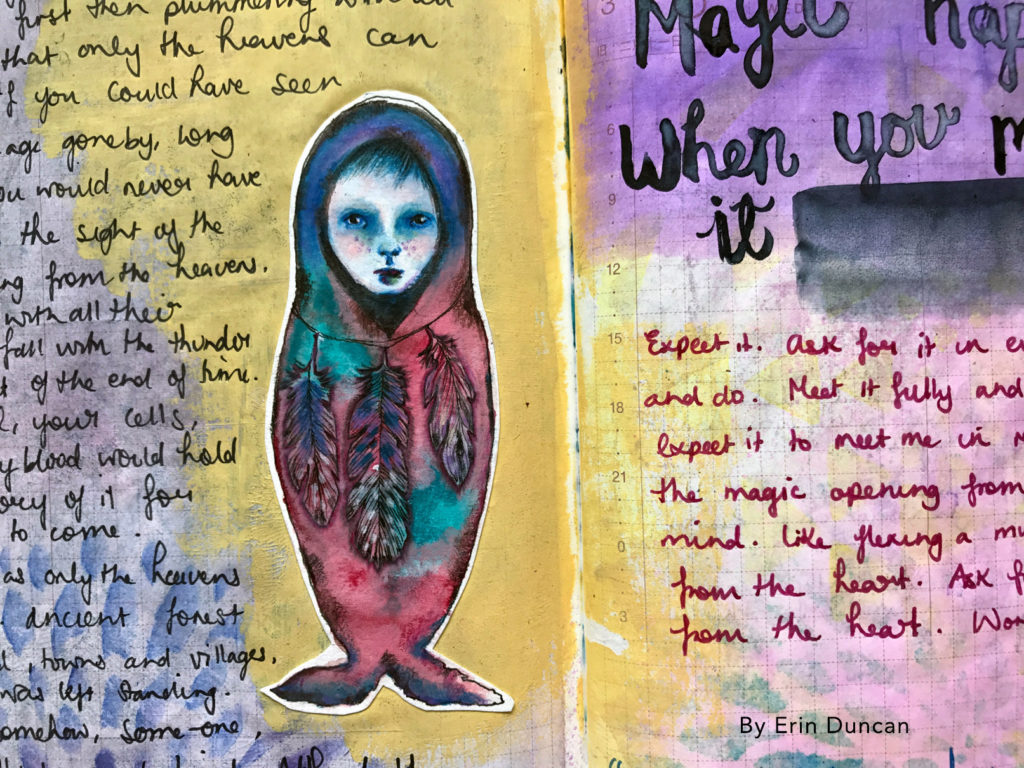 first then plummeting
that only the heavens can
if you could have seen
age gone by, long
you would never have
the sight of the
from the heavens.
with all their
fall with the thunder
of the end of time.
your cells,
blood would hold
of it for
to come.
as only the heavens
ancient forest
, towns and villages,
was left standing.
somehow, some-one,
Magic hap
When you m
it
3
6
9
12
15
18
21
0
3
Expect it. Ask for it in
and do. Meet it fully and
expect it to meet me in
the magic opening from
mind. like flexing a mu
from the heart. Ask f
from the heart. Wor
By Erin Duncan